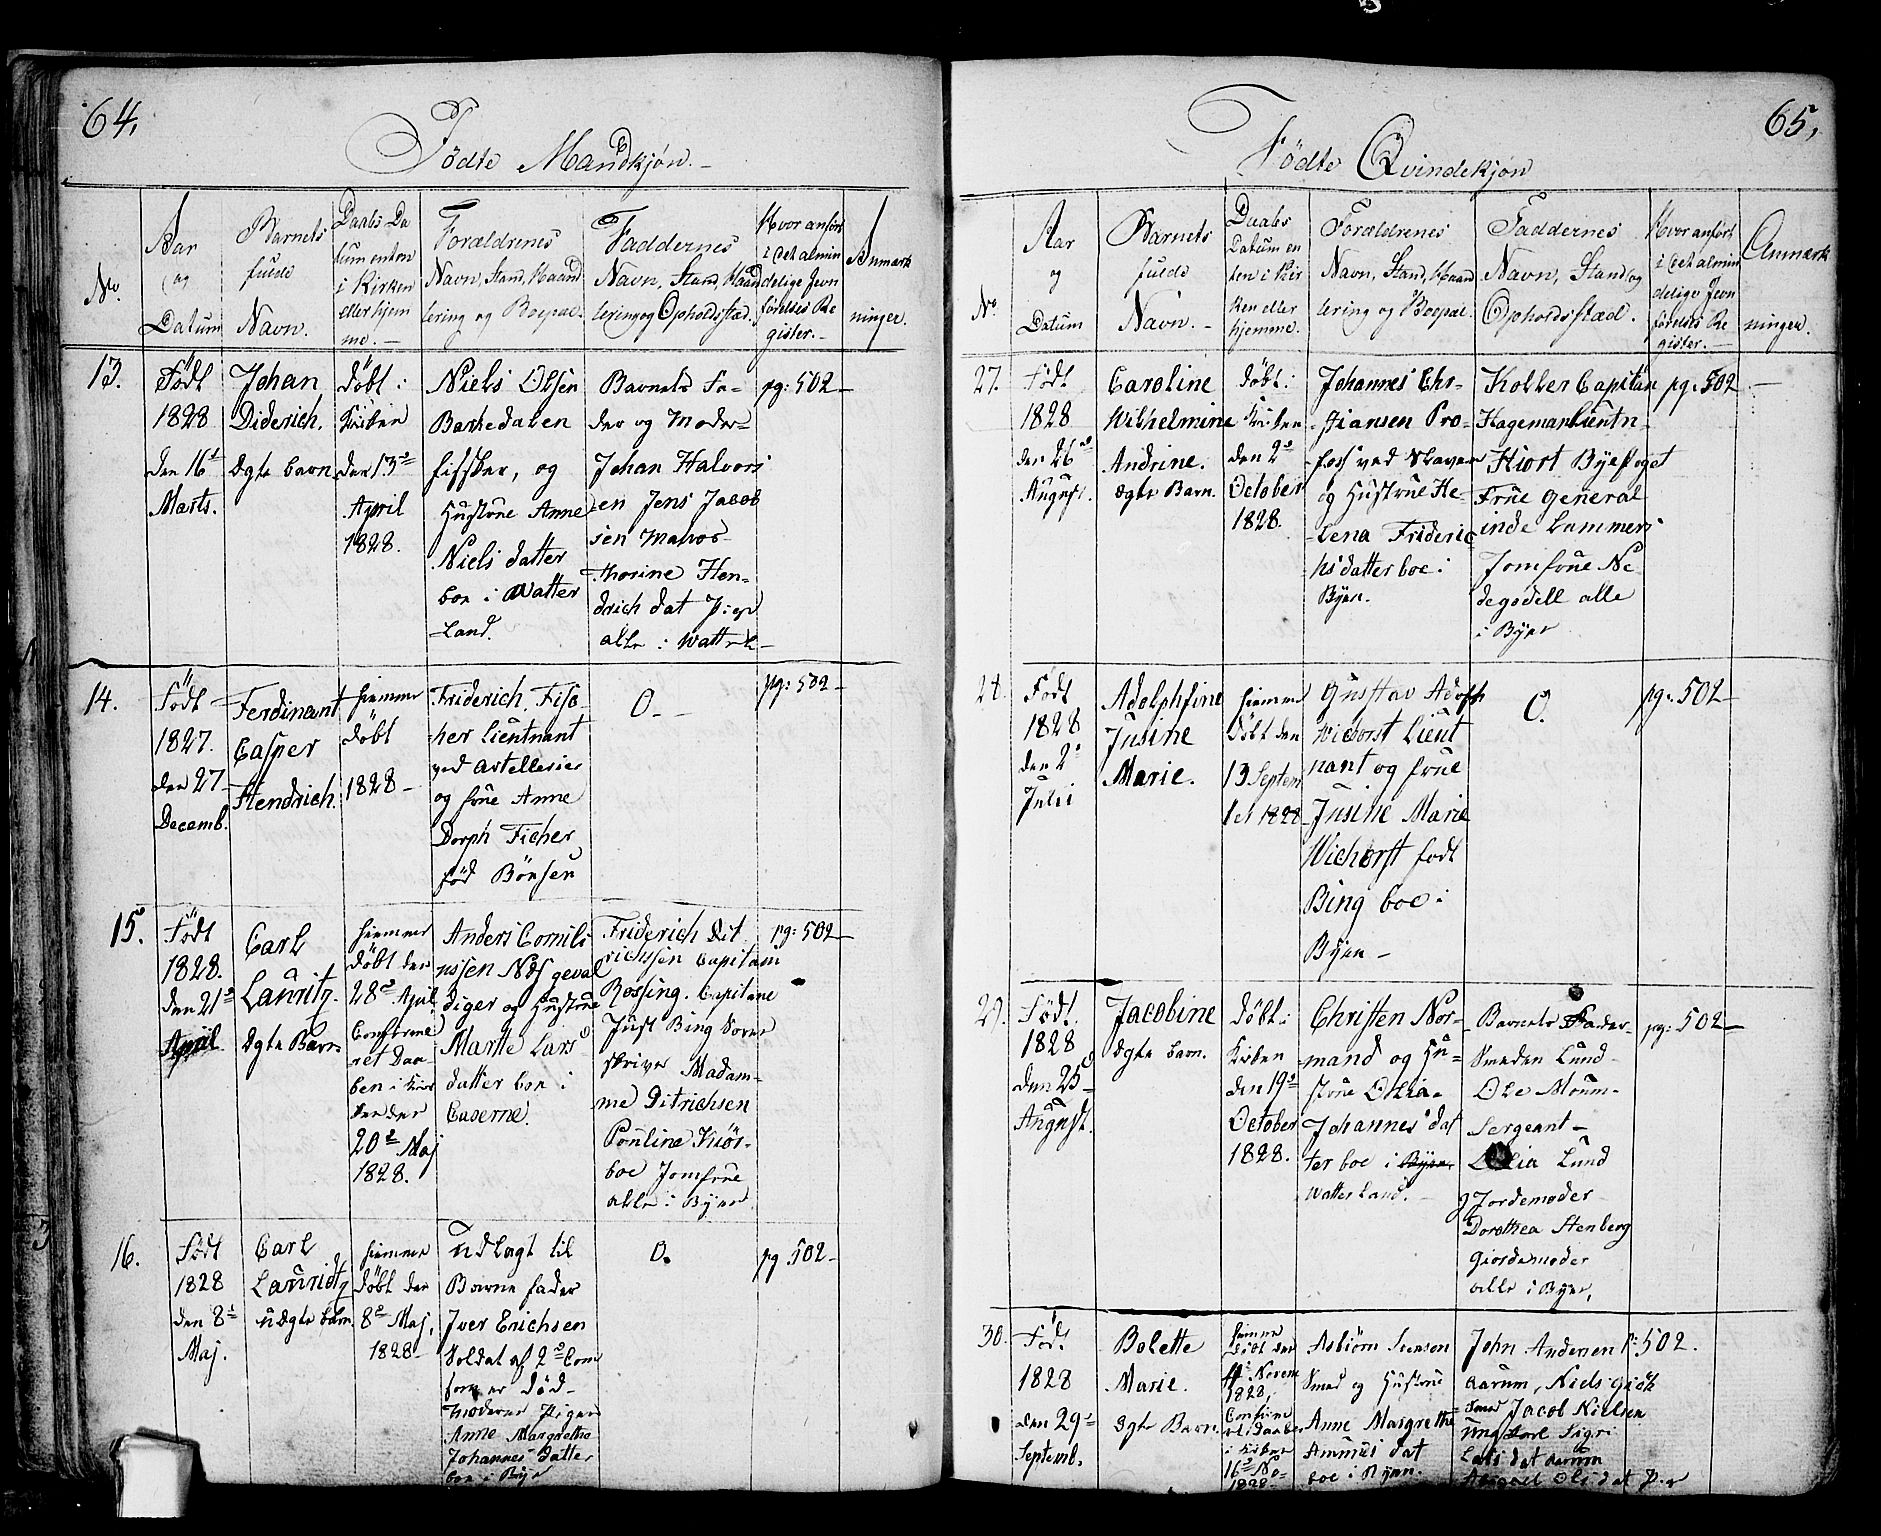 64.
Födte Mandkjøn.
No.
Aar
og
Datum
Barnets
fulde
Navn.
Daabs Da
tum enten
i Kirken
eller hjem
me.
Forældrenes
Navn, Stand, Haand
tering og Boepæl.
Faddernes
Navn, Stand, Haand
tering og Opholdsstæd.
Hvor anført
i det almin
delige Jevn
førelses Re
gister.
Anmærk
ninger.
13.
Födt
1828
den 16d
Marts.
Johan
Diderich.
Ægte barn
döbt i
Kirken
den 13d
April
1828.
Niels Olsen
Barkedalen
fissker, og
Hustrue Anne
Niels datter
boe i Watter
Land.
Barnets Fa-
der og Moder-
Johan Halvors
en Jens Jacob
sen
thorine Hen-
drich dat Pige
alle i Watterl-
pg: 502-
14.
Födt
1827.
den 27
Decemb.
Ferdinant
Casper
Hendrich.
hiemme
döbt
1828-
Friderich Fiss-
her Lieutnant
ved Artellerier
og frue Anne
Dorph Ficher
föd Bönsen
O.-
pg: 502-
15.
Födt
1828.
den 21d
April
Carl
Lauritz.
Ægte Barn
hiemme
döbt den
28d April
Confirme
ret Daa
ben i Kir
ken den
20d Maj
1828.
Anders Cornili
ussen Nds geval
diger og Hustrue
Marthe Lars
datter boe i
Caserne.
Friderich Dit
richssen Capitain
Rossing. Capitaine
Just Bing Soren
skriver Madam-
me Ditrichsen
Pouline Kiör-
boe Jomfrue
alle i Byen
pg: 502-
16.
Födt
1828
den 8d
Maj.
Carl
Lauridtz
uægte barn
hiemme
döbt den
8d Maj,
1828-
Udlagt til
Barne fader
Iver Erichsen
Soldat af 2d Com
som er död-
Moderen Pigen
Anne Margrethe
Johannes datter
boe i Byen
O.
pg. 502-
65.
Födte Qvindekjøn
No.
Aar
og
Datum
Barnets
fulde
Navn.-
Daabs
Datum en
ten i Kir
ken eller
hjemme.
Forældrenes
Navn, Stand, Haand
tering og Boepæl.
Faddernes
Navn, Stand og
Opholdsstæd.
Hvor anført
i det almin
delige Jevn
førelses Re
gister.-
Anmærk
ninger.
27.
Födt
1828
den 26d
August.
Caroline
Wilhelmine
Andrine.
Ægte Barn.
döbt i
Kirken
den 2d
October
1828.
Johannes Chr-
stiansen Pro-
foss ved Slaven
og Hustrue He-
lena Frideric
hs datter boe i
Byen.
Koller Capitän
Hageman Lieutn-
Hiort Byefoget
Frue General
inde Lammers
Jomfrue Ne
degodell alle
i Byen
pg. 502-
28.
Födt
1828
den 2d
Juli
Adolphine
Jusine
Marie.
hiemme
Döbt den
13 Septem
1828
Gusstav Adolph
Wichorst Lieut
nant og frue
Jusine Marie
Wichorst födt
Bing boe i
Byen-
O.
pg. 502-
29.
Födt.
1828
den 25d
August.
Jacobine
Ægte barn.
döbt i
Kirken
den 19d
October
1828.
Christen Nor-
mand og Hu-
strue Olia-
Johannes dat
ter boe i Byen
Watter Land.-
Barnets Fader-
Smeden Lund-
Ole Moum-
Sergeant-
Lund
Jordemoder
Dorothea Stenberg
Giordemoder
alle i Byen,
pg: 502-
30.
Föd.
1828
den 29d
Septemb.
Bolette
Marie.
Ægte Barn.
hiemme
Döbt den
Novem
1828,
Confirme
ret daaben
i Kirken
16d No-
1828-
Asbiörn Svensen
Smed og Hustrue
Anne Margrethe
Asmus dat
boe i Byen.
John Andersen
Aarum, Niels
Smed Jacob Nielsen
Sigri
Lars dat Aarum
Ols dat Pige
p: 502.